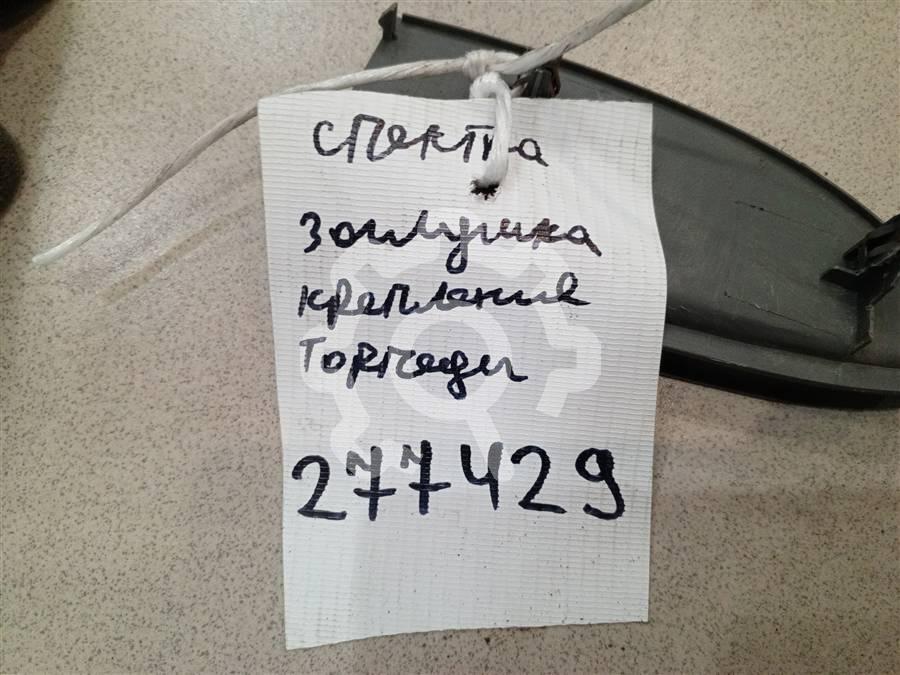 Спектра
Заглушка
крепление
Торпеды
277429